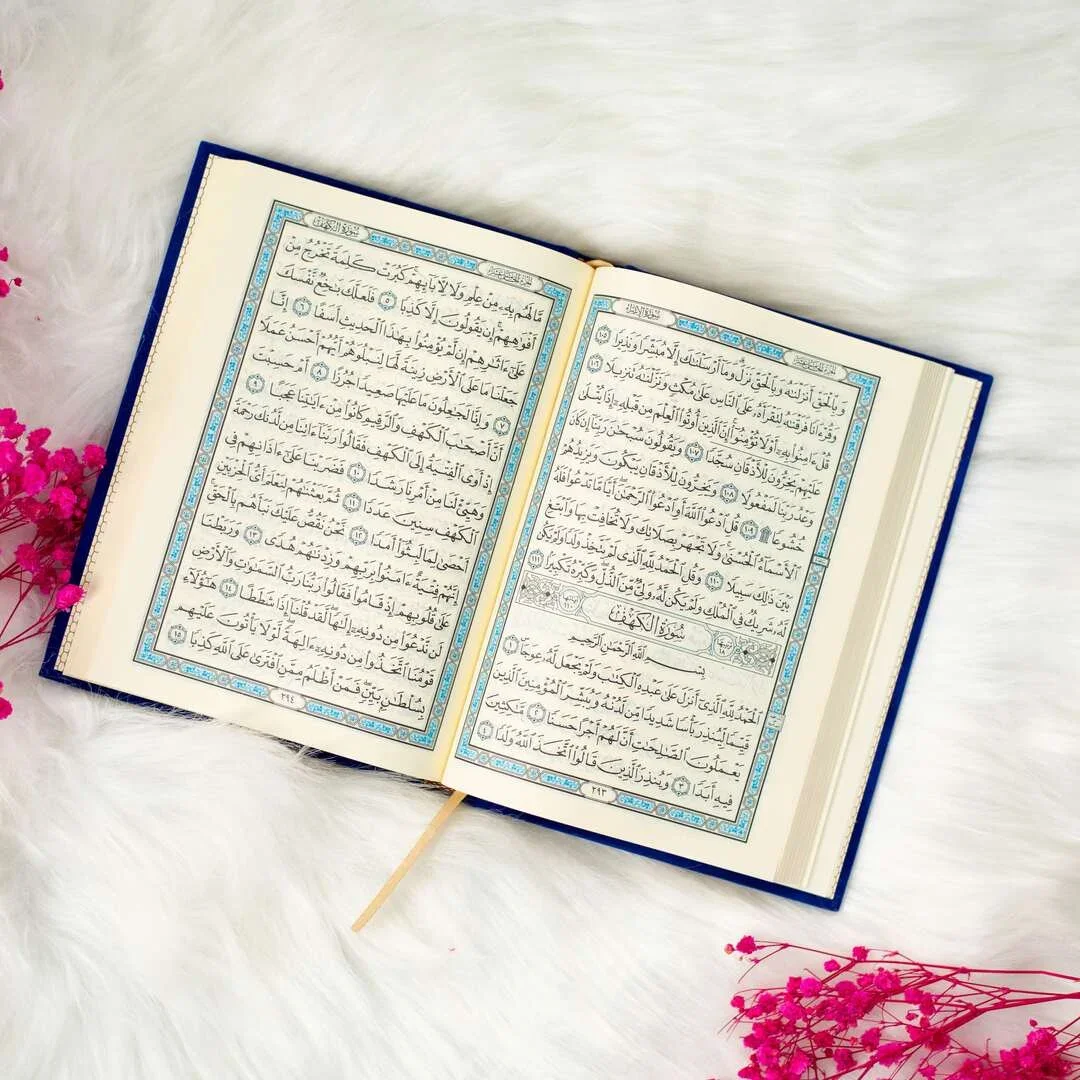 سُورَةُ الإِسْرَاءِ
الجُزْءُ الخَامِسَ عَشَرَ
وَبِٱلْحَقِّ أَنزَلْنَٰهُ وَبِٱلْحَقِّ نَزَلَ ۗ وَمَآ أَرْسَلْنَٰكَ إِلَّا مُبَشِّرًا وَنَذِيرًا ١٠٥
وَقُرْءَانًا فَرَقْنَٰهُ لِتَقْرَأَهُۥ عَلَى ٱلنَّاسِ عَلَىٰ مُكْثٍ وَنَزَّلْنَٰهُ تَنزِيلًا ١٠٦
قُلْ ءَامِنُوا۟ بِهِۦٓ أَوْ لَا تُؤْمِنُوٓا۟ ۚ إِنَّ ٱلَّذِينَ أُوتُوا۟ ٱلْعِلْمَ مِن قَبْلِهِۦٓ إِذَا يُتْلَىٰ
عَلَيْهِمْ يَخِرُّونَ لِلْأَذْقَانِ سُجَّدًا ١٠٧ وَيَقُولُونَ سُبْحَٰنَ رَبِّنَآ إِن كَانَ
وَعْدُ رَبِّنَا لَمَفْعُولًا ١٠٨ وَيَخِرُّونَ لِلْأَذْقَانِ يَبْكُونَ وَيَزِيدُهُمْ
خُشُوعًا ۩ ١٠٩ قُلِ ٱدْعُوا۟ ٱللَّهَ أَوِ ٱدْعُوا۟ ٱلرَّحْمَٰنَ ۖ أَيًّا مَّا تَدْعُوا۟ فَلَهُ
ٱلْأَسْمَآءُ ٱلْحُسْنَىٰ ۚ وَلَا تَجْهَرْ بِصَلَاتِكَ وَلَا تُخَافِتْ بِهَا وَٱبْتَغِ
بَيْنَ ذَٰلِكَ سَبِيلًا ١١٠ وَقُلِ ٱلْحَمْدُ لِلَّهِ ٱلَّذِى لَمْ يَتَّخِذْ وَلَدًا وَلَمْ يَكُن
لَّهُۥ شَرِيكٌ فِى ٱلْمُلْكِ وَلَمْ يَكُن لَّهُۥ وَلِىٌّ مِّنَ ٱلذُّلِّ ۖ وَكَبِّرْهُ تَكْبِيرًۢا ١١١
سُورَةُ الكَهْفِ
بِسْمِ ٱللَّهِ ٱلرَّحْمَٰنِ ٱلرَّحِيمِ
ٱلْحَمْدُ لِلَّهِ ٱلَّذِىٓ أَنزَلَ عَلَىٰ عَبْدِهِ ٱلْكِتَٰبَ وَلَمْ يَجْعَل لَّهُۥ عِوَجَا ١
قَيِّمًا لِّيُنذِرَ بَأْسًا شَدِيدًا مِّن لَّدُنْهُ وَيُبَشِّرَ ٱلْمُؤْمِنِينَ ٱلَّذِينَ
يَعْمَلُونَ ٱلصَّٰلِحَٰتِ أَنَّ لَهُمْ أَجْرًا حَسَنًا ٢ مَّٰكِثِينَ
فِيهِ أَبَدًا ٣ وَيُنذِرَ ٱلَّذِينَ قَالُوا۟ ٱتَّخَذَ ٱللَّهُ وَلَدًا ٤
٢٩٣
الجُزْءُ الخَامِسَ عَشَرَ
سُورَةُ الكَهْفِ
مَّا لَهُم بِهِۦ مِنْ عِلْمٍ وَلَا لِـَٔابَآئِهِمْ ۚ كَبُرَتْ كَلِمَةً تَخْرُجُ مِنْ
أَفْوَٰهِهِمْ ۚ إِن يَقُولُونَ إِلَّا كَذِبًا ٥ فَلَعَلَّكَ بَٰخِعٌ نَّفْسَكَ
عَلَىٰٓ ءَاثَٰرِهِمْ إِن لَّمْ يُؤْمِنُوا۟ بِهَٰذَا ٱلْحَدِيثِ أَسَفًا ٦ إِنَّا
جَعَلْنَا مَا عَلَى ٱلْأَرْضِ زِينَةً لَّهَا لِنَبْلُوَهُمْ أَيُّهُمْ أَحْسَنُ عَمَلًا
٧ وَإِنَّا لَجَٰعِلُونَ مَا عَلَيْهَا صَعِيدًا جُرُزًا ٨ أَمْ حَسِبْتَ
أَنَّ أَصْحَٰبَ ٱلْكَهْفِ وَٱلرَّقِيمِ كَانُوا۟ مِنْ ءَايَٰتِنَا عَجَبًا ٩
إِذْ أَوَى ٱلْفِتْيَةُ إِلَى ٱلْكَهْفِ فَقَالُوا۟ رَبَّنَآ ءَاتِنَا مِن لَّدُنكَ رَحْمَةً
وَهَيِّئْ لَنَا مِنْ أَمْرِنَا رَشَدًا ١٠ فَضَرَبْنَا عَلَىٰٓ ءَاذَانِهِمْ فِى
ٱلْكَهْفِ سِنِينَ عَدَدًا ١١ ثُمَّ بَعَثْنَٰهُمْ لِنَعْلَمَ أَىُّ ٱلْحِزْبَيْنِ
أَحْصَىٰ لِمَا لَبِثُوٓا۟ أَمَدًا ١٢ نَّحْنُ نَقُصُّ عَلَيْكَ نَبَأَهُم بِٱلْحَقِّ ۚ
إِنَّهُمْ فِتْيَةٌ ءَامَنُوا۟ بِرَبِّهِمْ وَزِدْنَٰهُمْ هُدًى ١٣ وَرَبَطْنَا
عَلَىٰ قُلُوبِهِمْ إِذْ قَامُوا۟ فَقَالُوا۟ رَبُّنَا رَبُّ ٱلسَّمَٰوَٰتِ وَٱلْأَرْضِ
لَن نَّدْعُوَا۟ مِن دُونِهِۦٓ إِلَٰهًا ۖ لَّقَدْ قُلْنَآ إِذًا شَطَطًا ١٤ هَٰٓؤُلَآءِ
قَوْمُنَا ٱتَّخَذُوا۟ مِن دُونِهِۦٓ ءَالِهَةً ۖ لَّوْلَا يَأْتُونَ عَلَيْهِم
بِسُلْطَٰنٍۭ بَيِّنٍ ۖ فَمَنْ أَظْلَمُ مِمَّنِ ٱفْتَرَىٰ عَلَى ٱللَّهِ كَذِبًا ١٥
٢٩٤